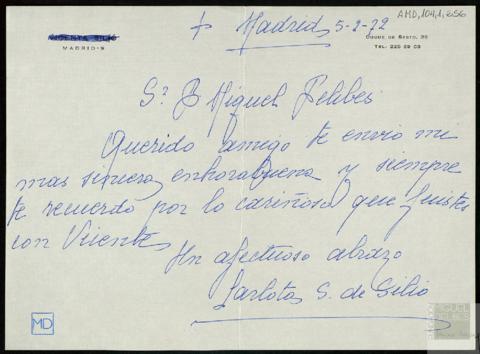 AMD, 104, 1, 256
VICENTE SILIO
MADRID-9
+ Madrid 5-2-72
DUQUE DE SESTO, 36
TEL. 225 29 03
Sr D Miguel Delibes
Querido amigo te envio mi
mas sincera enhorabuena y siempre
te recuerdo por lo cariñoso que fuistes
con Vicente
Un afectuoso abrazo
Carlota S. de Silio
MD